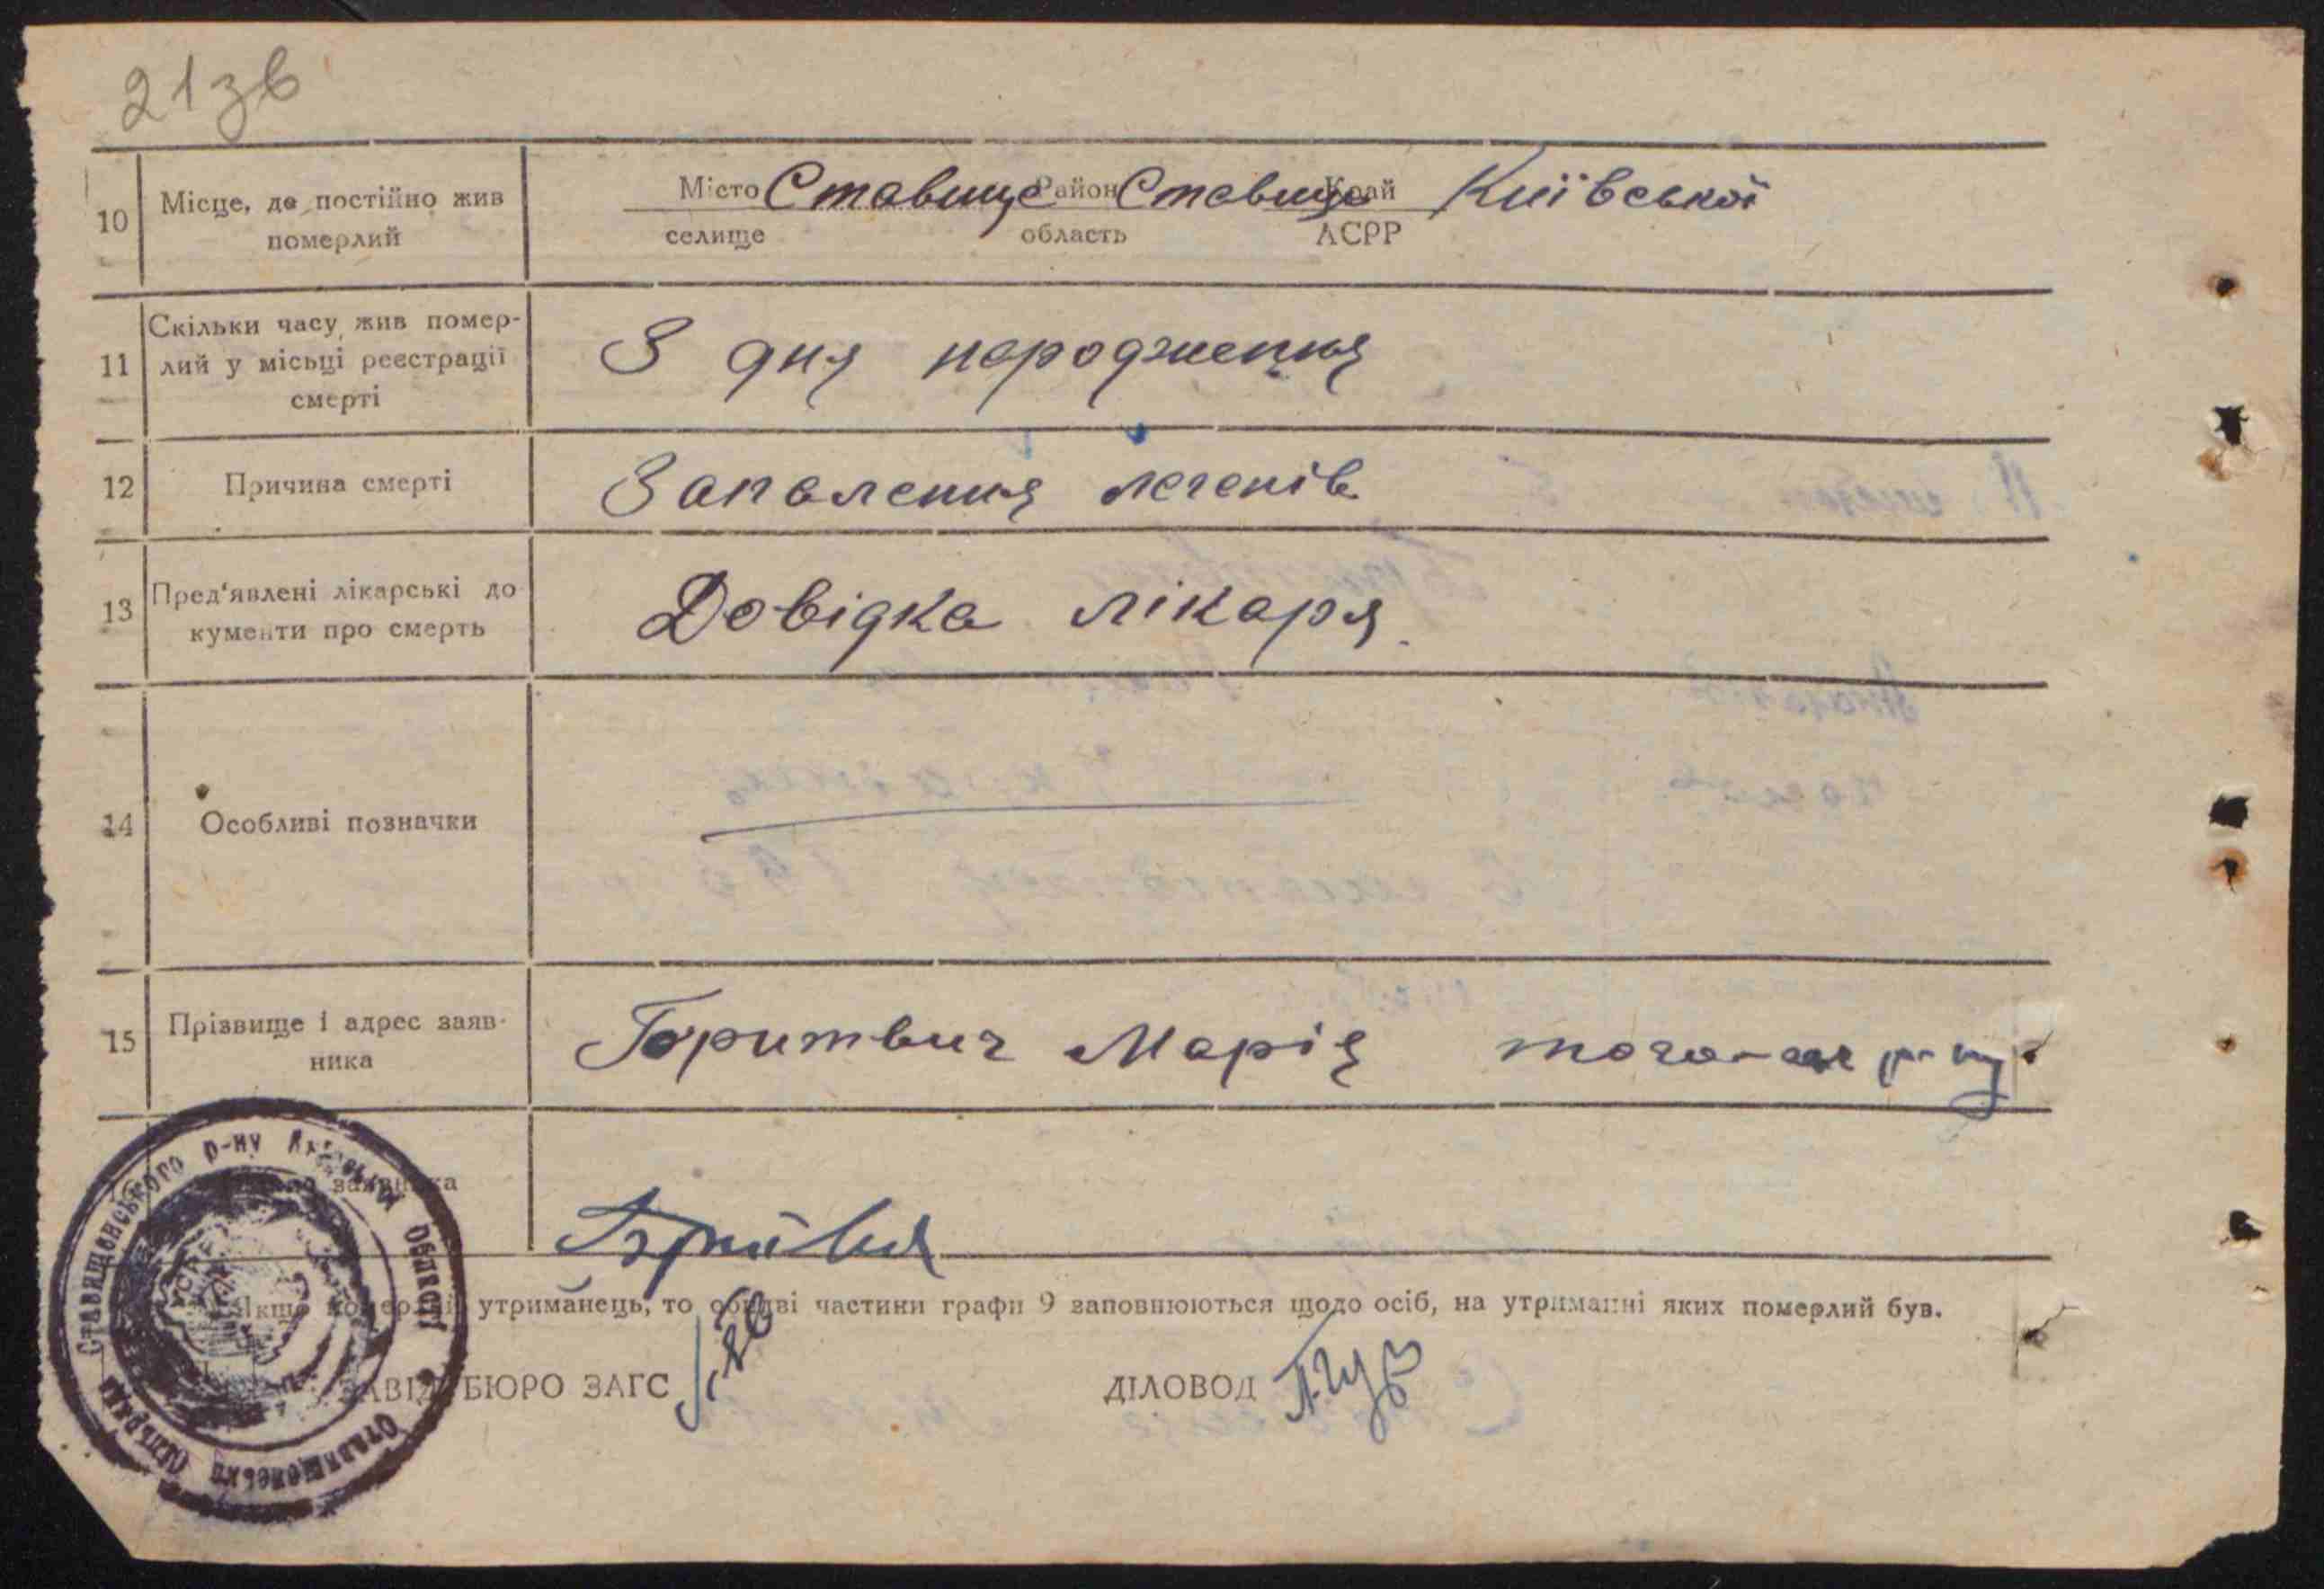 21зв
10 Місце, де постійно жив померлий
Місто Ставище Район Ставище Край Київської
селище область АСРР
11 Скільки часу жив помер-
лий у місьці реєстрації
смерті
З дня народження
12 Причина смерті Запалення легенів
13 Пред'явлені лікарські до
кументи про смерть
Довідка лікаря.
14 Особливі позначки
15 Прізвище і адрес заяв-
ника
Марія того-
заявника
Якщо померлий утриманець, то обидві частини графи 9 заповнюються щодо осіб, на утриманні яких померлий був.
ЗАВІД БЮРО ЗАГС ДІЛОВОД
Ставищенського р-ну Київської Області
Ставищенська Сільрада